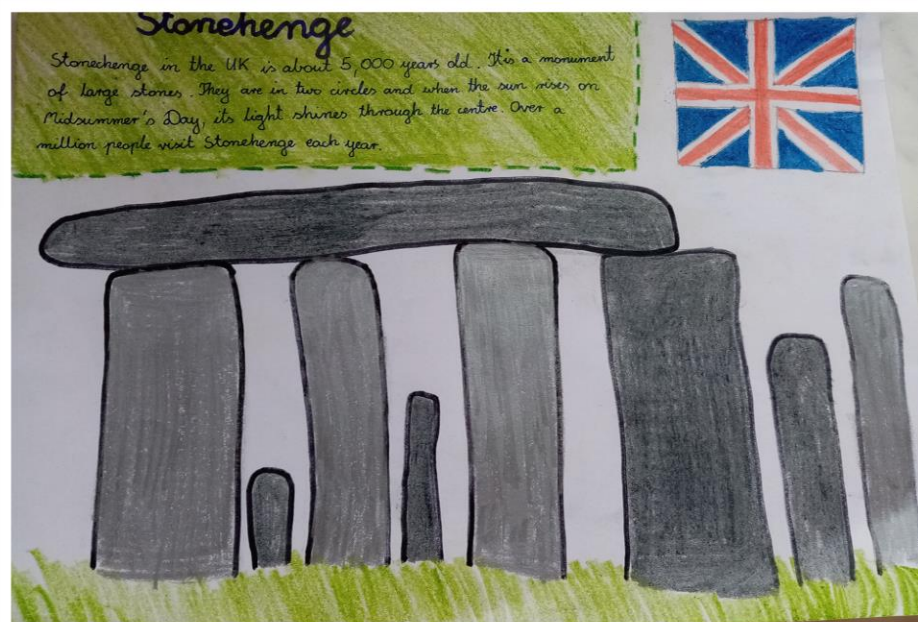 Stonehenge
Stonechenge in the UK is about 5,000 years old. It is a monument
of large stones. They are in two circles and when the sun rises on
Midsummer's Day, its light shines through the centre. Over a
million people visit Stonehenge each year.